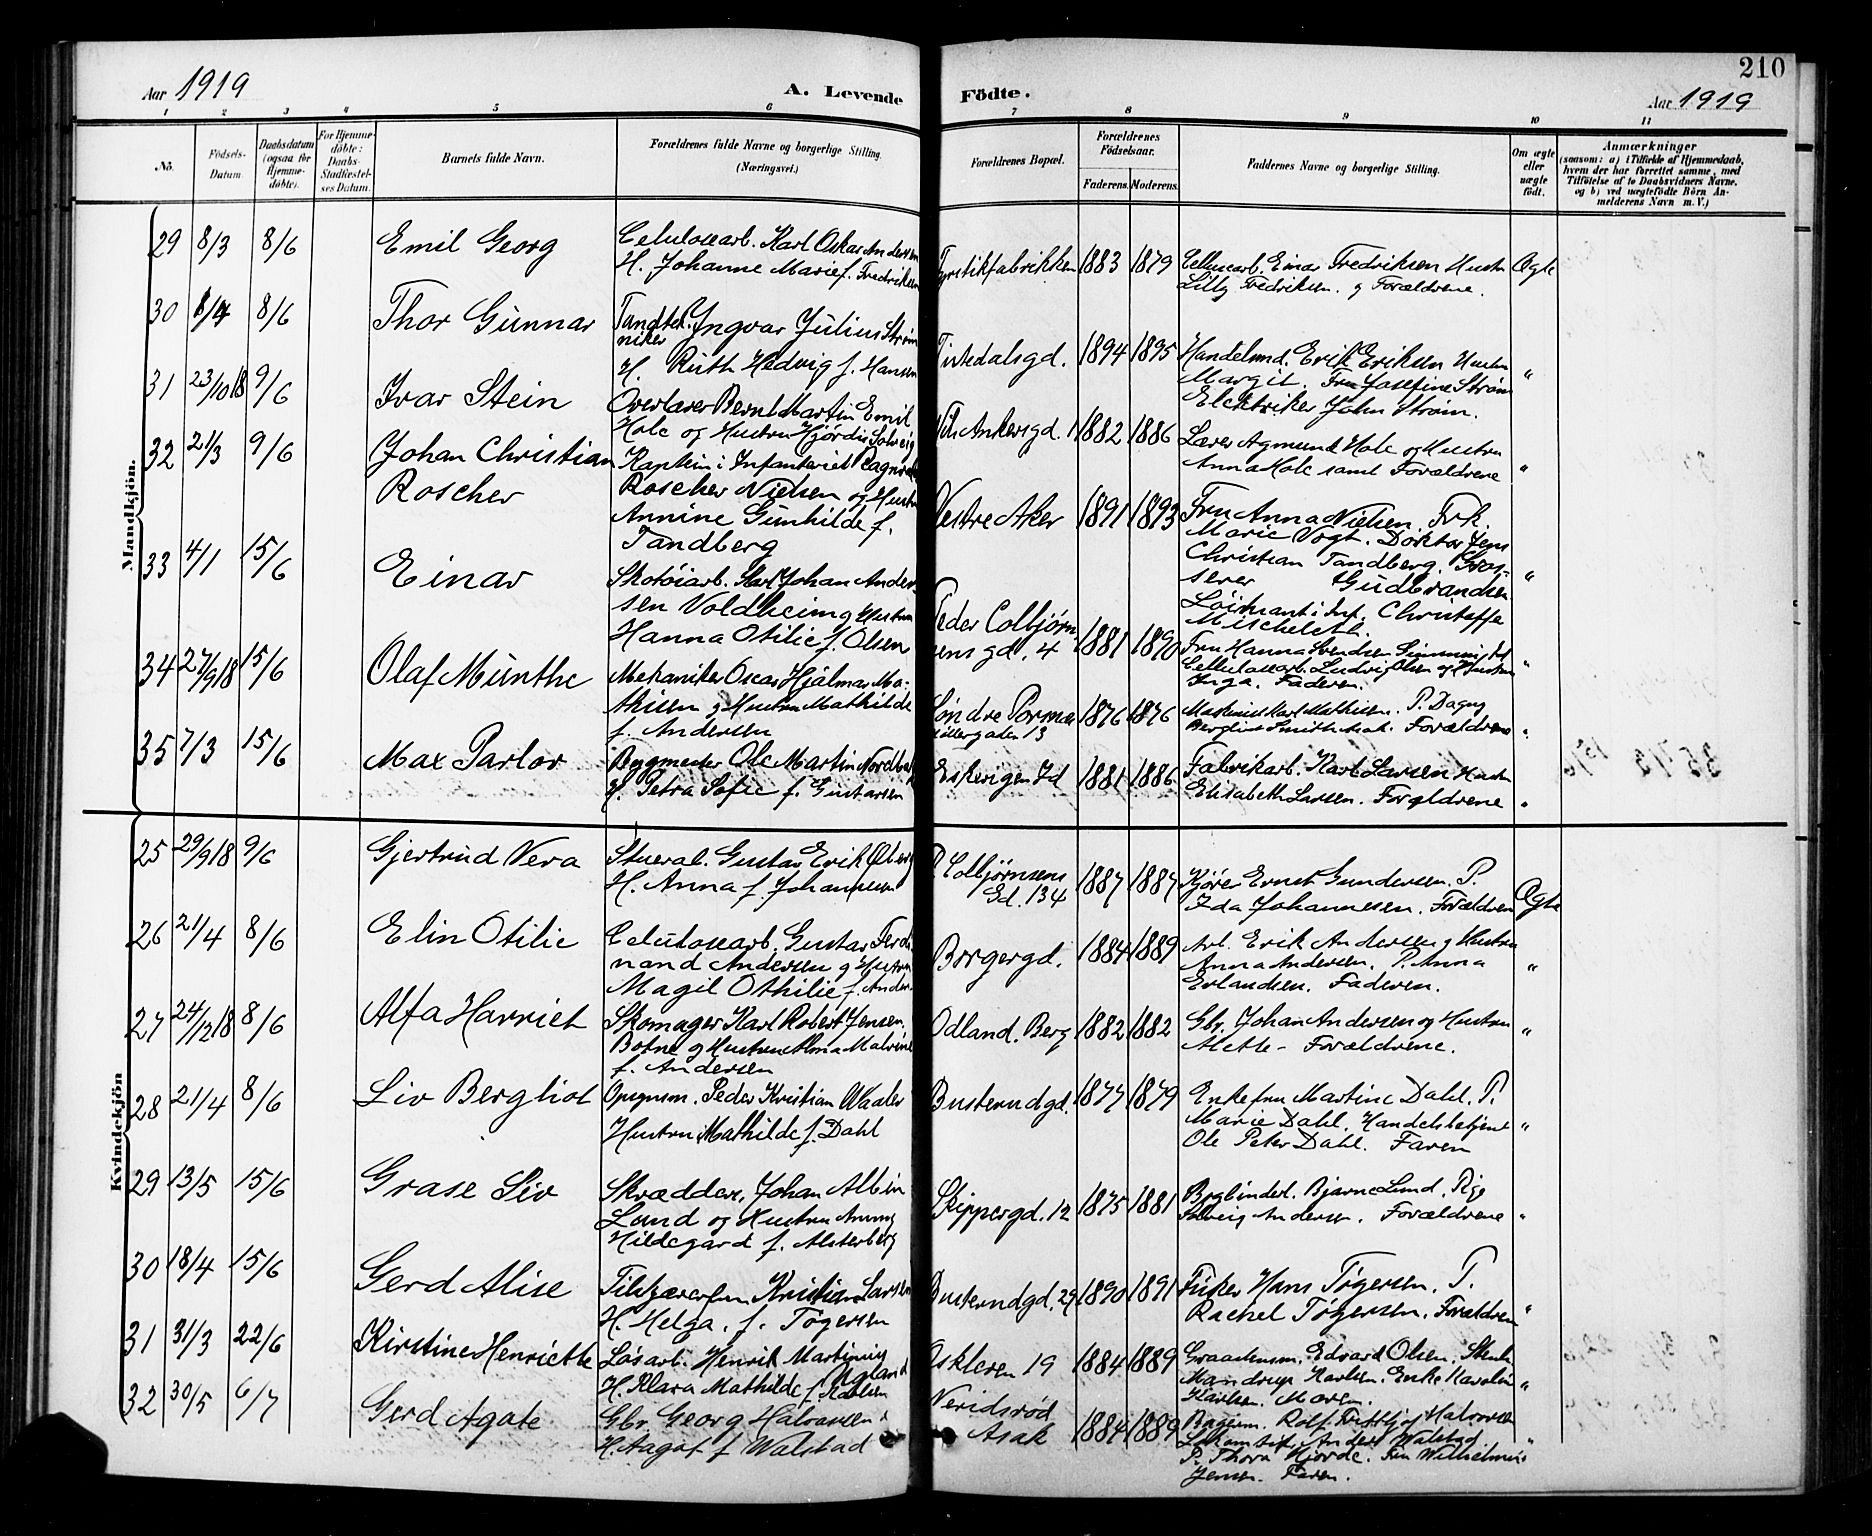 210
Aar 1919 A. Levende Födte. Aar 1919
1 2 3 4 5 6 7 8 9 10 11
No. Födsels-Datum. Daabsdatum (ogsaa for Hjemme-döbte). For Hjemme-döbte: Daabs-Stadfæstel-ses Datum. Barnets fulde Navn. Forældrenes fulde Navne og borgerlige Stilling (Næringsvei.) Forældrenes Bopæl. Forældrenes Födselsaar. Faderens. Moderens. Faddernes Navne og borgerlige Stilling. Om ægte eller uægte födt. Anmærkninger (saasom: a) i Tilfælde af Hjemmedaab, hvem der har forrettet samme, med Tilföielse af to Daabsvidners Navne, og b) ved uægtefödte Börn An-melderens Navn m. V.)
Mandkjön.
29 8/3 8/6 Emil Georg Celulosearb. Karl Oskar Andersen 1883 1879 Einar Fredriksen Hustru Ægte
H. Johanne Marie f. Fredriksen Lilly Fredriksen. g Forældrene.
30 8/6 Thor Gunnar Ingvar Julius Strøm Tistedalsgd. 1894 1895 Erik Eriksen Hustru "
H. Ruth Hedvig f. Hansen Margit. Fru Josefine Strøm
Elektriker John Strøm.
31 23/10 18 9/6 Ivar Stein Overlærer Bernt Martin Emil Ankersgd. 1882 1886 Lærer Agmund Hole og Hustru "
Hole og Hustru Hjørdis Solveig Anna Hole samt Forældrene
32 21/3 9/6 Johan Christian Kaptein i Infanteriet Vestre Aker 1891 1893 Fru Anna Nielsen. Frk. "
Roscher Roscher Nielsen og Hustru Marie Vogt. Doktor Jens
Annine Gunhilde f. Christian Tandberg. Gros-
Tandberg serer Gudbrandsen
Løitnant i Inf. Christoffer
33 4/1 15/6 Einar Skotøiarb. Karl Johan Ander- Peder Colbjørn- 1881 1890 Fru Hanna Svendsen "
sen Voldheim g Hustru sens gd. 4 Cellulosearb. Ludvig Olsen og Hustru
Hanna Otilie f. Olsen Inga. Faderen.
34 27/9 18 15/6 Olaf Munthe Mekaniker Oscar Hjalmar Ma- Søndre 1876 1876 Maskinist Karl Mathisen. P. Dagny "
thisen g Hustru Mathilde 13 Forældrene
f. Andersen
35 7/3 15/6 Max Parlov Bygmester Ole Martin Id 1881 1886 Fabrikarb. Karl Larsen Hustru "
H. Petra Sofie f. Gustavsen Elisabeth Larsen. Forældrene
Kvindekjön
25 29/9 18 9/6 Gjertrud Vera Gustav Erik P. Colbjørnsens 1887 1887 Kjører Ernst Gundersen. P. Ægte
H. Anna f. Johannesen Gd. 134 Ida Johannesen. Forældren
26 21/4 8/6 Elin Otilie Celulosearb. Gustav Ferdi- Borgergd. 1884 1889 Arb. Erik Andersen g Hustru "
nand Andersen g Hustru Anna Andersen. P. Anna
Magil Othilie f. Ander. Erlandsen. Faderen.
27 24/12 18 8/6 Alfa Harriet Skomager Karl Robert Jensen. Odland. Berg 1882 1882 Gbr. Johan Andersen og Hustru "
Botne g Hustru Alma Malvine Forældrene.
f. Andersen
28 21/4 8/6 Liv Bergliot Opsynsm. Peder Kristian Waaler Busterudgd. 1877 1879 Enkefru Martine Dahl. P. "
Hustru Mathilde f. Dahl Marie Dahl. Handelsbetjent
Ole Peter Dahl. Faren
29 13/5 15/6 Grase Siv Skrædder. Johan Albin Skippergd. 12 1875 1881 Bjarne Lund. Pige "
Lund og Hustru Anny Solveig Andersen. Forældrene
Hildegard f. Alsterberg
30 18/4 15/6 Gerd Alise Kristian Larsen Busterudgd. 29 1890 1891 Fisker Hans Tøgersen. P. "
H. Helga. f. Tøgersen Rachel Tøgersen. Forældren
31 31/3 22/6 Kirstine Henriette Løsarb. Henrik Martinius Askleven 19 1884 1889 Edvard Olsen. "
H. Klara Mathilde f. Karlsen Mandrup Karlsen. Enke Karoline
Karlsen. Moren.
32 30/5 6/7 Gerd Agate Gbr. Georg Halvorsen Veridsrød 1884 1889 Rolf Fritthjof Halvorsen "
H. Aagot f. Walstad Asak Anders Walstad
P. Thora Hjorde. Fru Wilhelmine
Jensen. Faren.